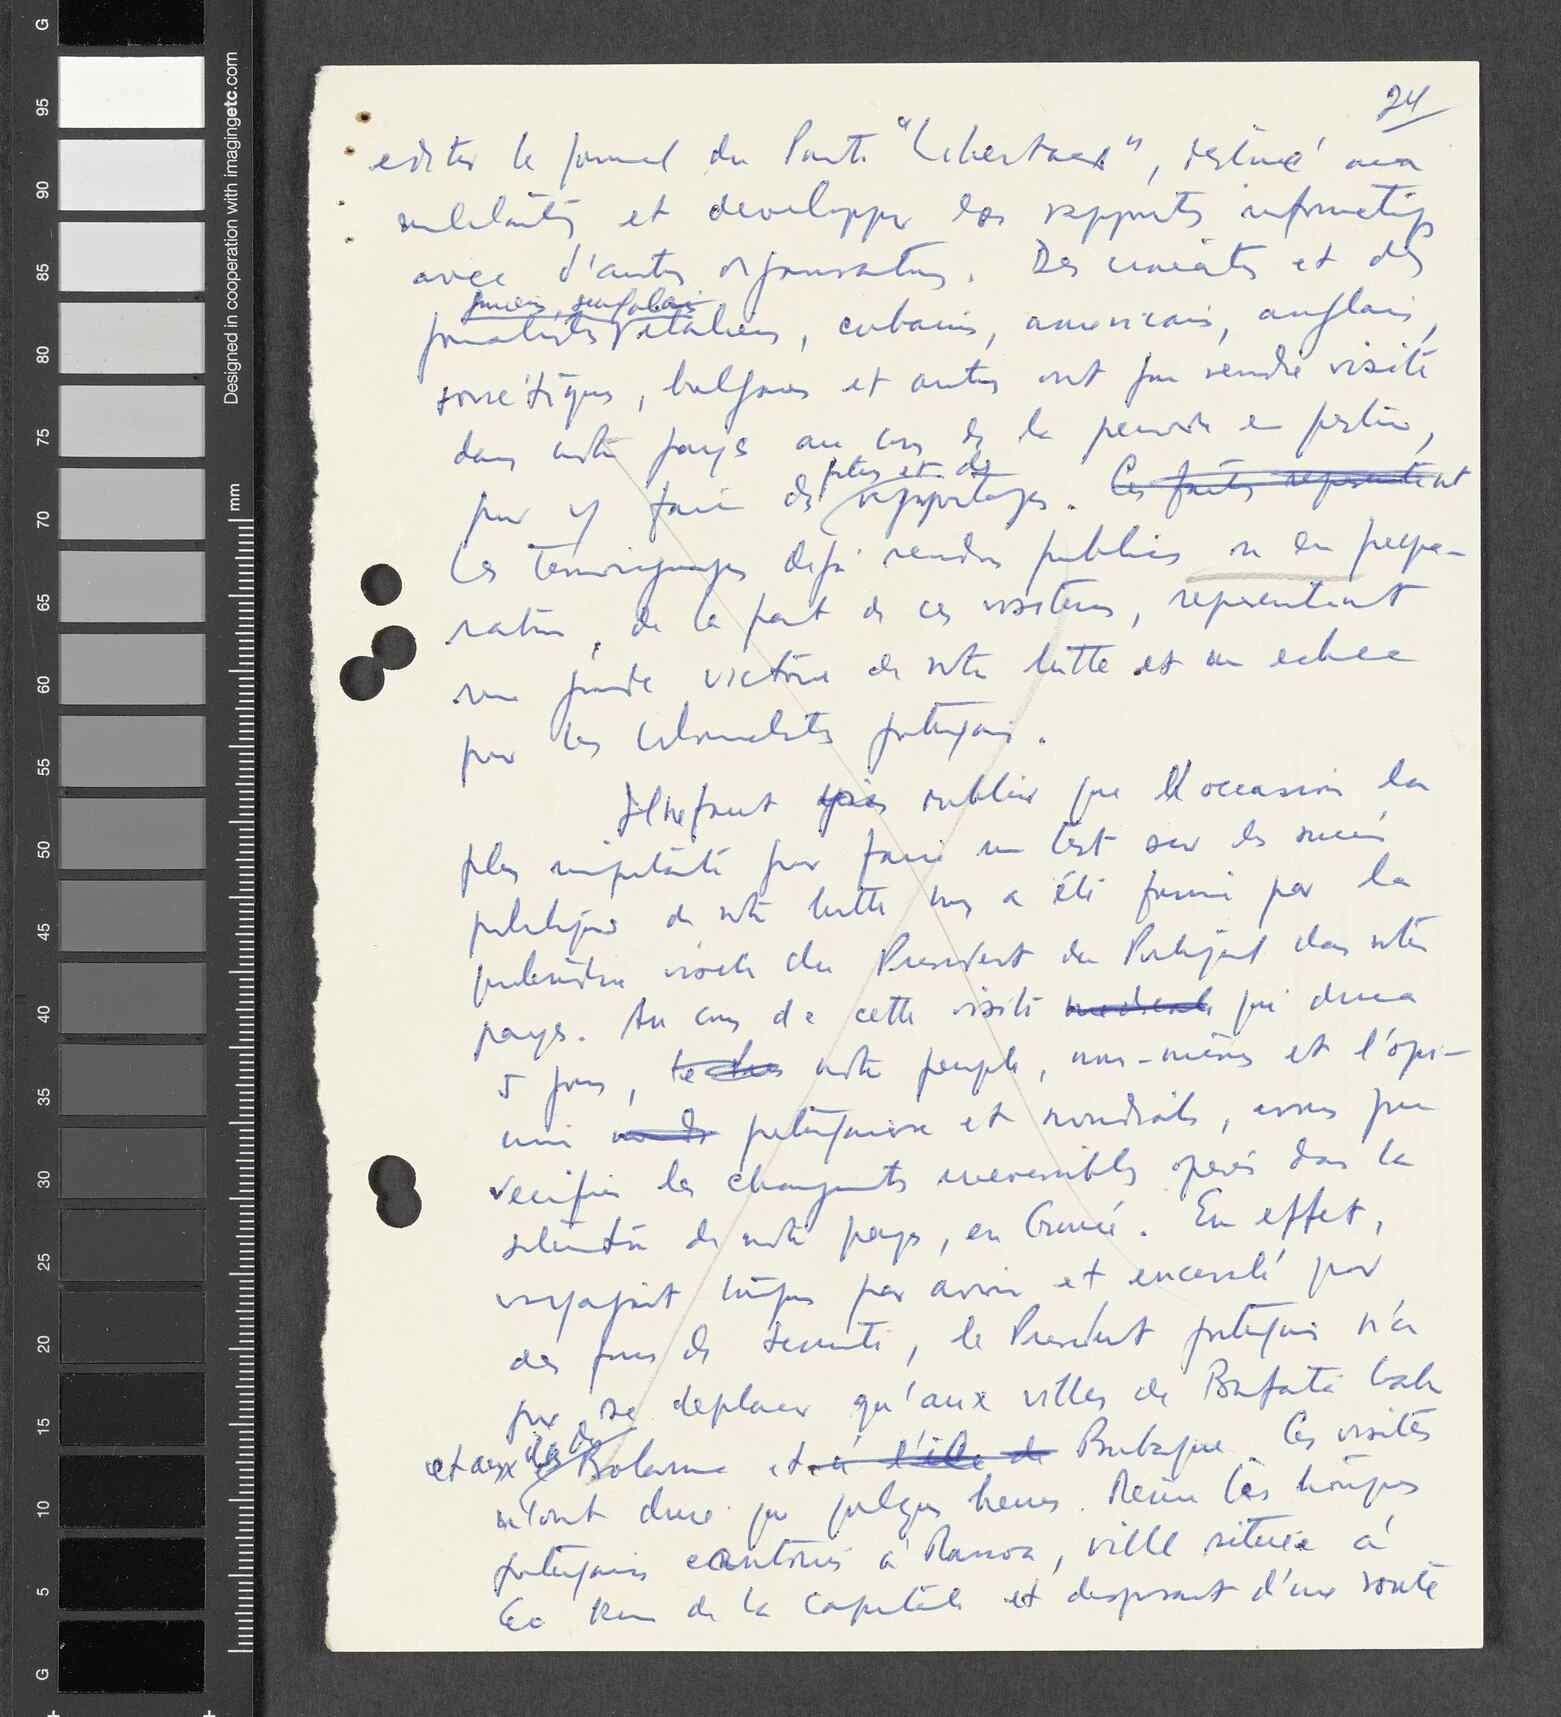 24
editer le journal du Parti "Libertaçao", destiné aux
militants et developper les rapports informatifs
avec d'autres organisations. Des cinéastes et des
journalistes italiens, cubains, americains, anglais,
soviétiques, bulgares et autres ont pu rendre visite
dans notre pays au cours de la periode en question,
pour y faire des films et des rapportages. Ces faits représentent
Les temoignages dejà rendus publics ou en prepa-
ration, de la part de ces visiteurs, representent
une grande victoire de notre lutte et un echec
pour les colonialistes portugais.
Il ne faut pas oublier que l'occasion la
plus importante pour faire un test sur les succès
politiques de notre lutte nous a été fourni par la
pretendue visite du President du Portugal dans notre
pays. Au cours de cette visite qui dura
5 jours, notre peuple, nous-mêmes et l'opi-
nion portugaise et mondiale, avons pu
verifier les changements irreversibles operés dans la
situation de notre pays, en Guinée. En effet,
voyageant toujours par avion et encerclé par
des forces de securité, le President portugais n'a
pu se deplacer qu'aux villes de Bafatá Gabu
et aux îles de Bolama et à l'île de Bubaque. Ces visites
n'ont duré que quelques heures. Même les troupes
portugaises cantonées à Mansoa, ville située à
60 Km de la capitale et disposant d'une route
Designed in cooperation with imagingetc.com
mm
G
95
90
85
80
75
70
65
60
55
50
45
40
35
30
25
20
15
10
5
G